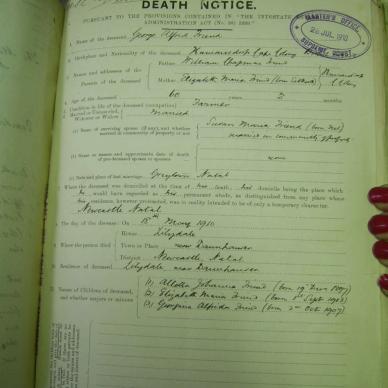 DEATH NOTICE.
PURSUANT TO THE PROVISIONS CONTAINED IN "THE INTESTATE
ADMINISTRATION ACT
MASTER'S OFFICE
JUL 1910
Name of the deceased, George Alfred Friend
Birthplace and Nationality of the deceased, Cape Colony
Father William Chapman Friend
Names and addresses of the
Parents of the deceased
Mother Elizabeth Maria Friend
Age of the deceased 60 years months
Condition in life of the deceased (occupation) Farmer
Married or Unmarried,
Widower or Widow Married
(a) Name of surviving spouse (if any), and whether
married in community of property or not
Susan Maria Friend (born
married in community of property
(b) Name or names and approximate date of death
of pre-deceased spouse or spouses
none
(c) Date and place of last marriage, Greytown Natal
Where the deceased was domiciled at the time of his death, his domicile being the place which
he would have regarded as his permanent abode, as distinguished from any place where
his residence, however protracted, was in reality intended to be of only a temporary character.
Newcastle Natal
The day of the decease: On 15th May 1910
House Lilydale
Where the person died Town or Place near Dannhauser
District Newcastle, Natal
Residence of deceased, Lilydale near Dannhauser
Names of Children of deceased,
and whether majors or minors
(1) Johanna Friend (born 19 Dec
(2) Elizabeth Maria Friend (born Sept
(3) Georgina Alfreda Friend (born 2nd Oct 1907)